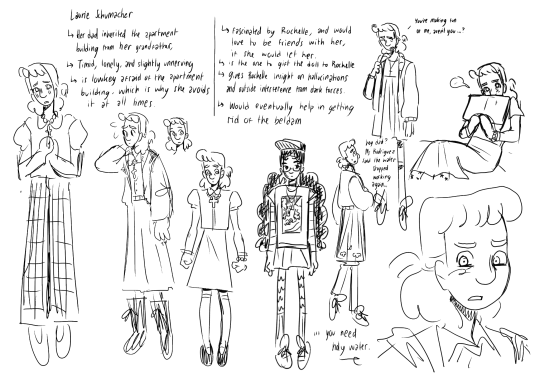 Laurie Schumacher
↳ Her dad inherited the apartment
building from her grandfather,
↳ Timid, lonely, and slightly unnerving
↳ is lowkey afraid of the apartment
building - which is why she avoids
it at all times.
↳ Fascinated by Rochelle, and would
love to be friends with her,
if she would let her.
↳ is the one to give the doll to Rochelle
↳ gives Rochelle insight on hallucinations
and outside interference from dark forces.
↳ Would eventually help in getting
rid of the beldam
You're making fun
of me, aren't you...?
hey dad?
Mr. Rodriguez
said the water
stopped
working
again...
... you need
holy water.